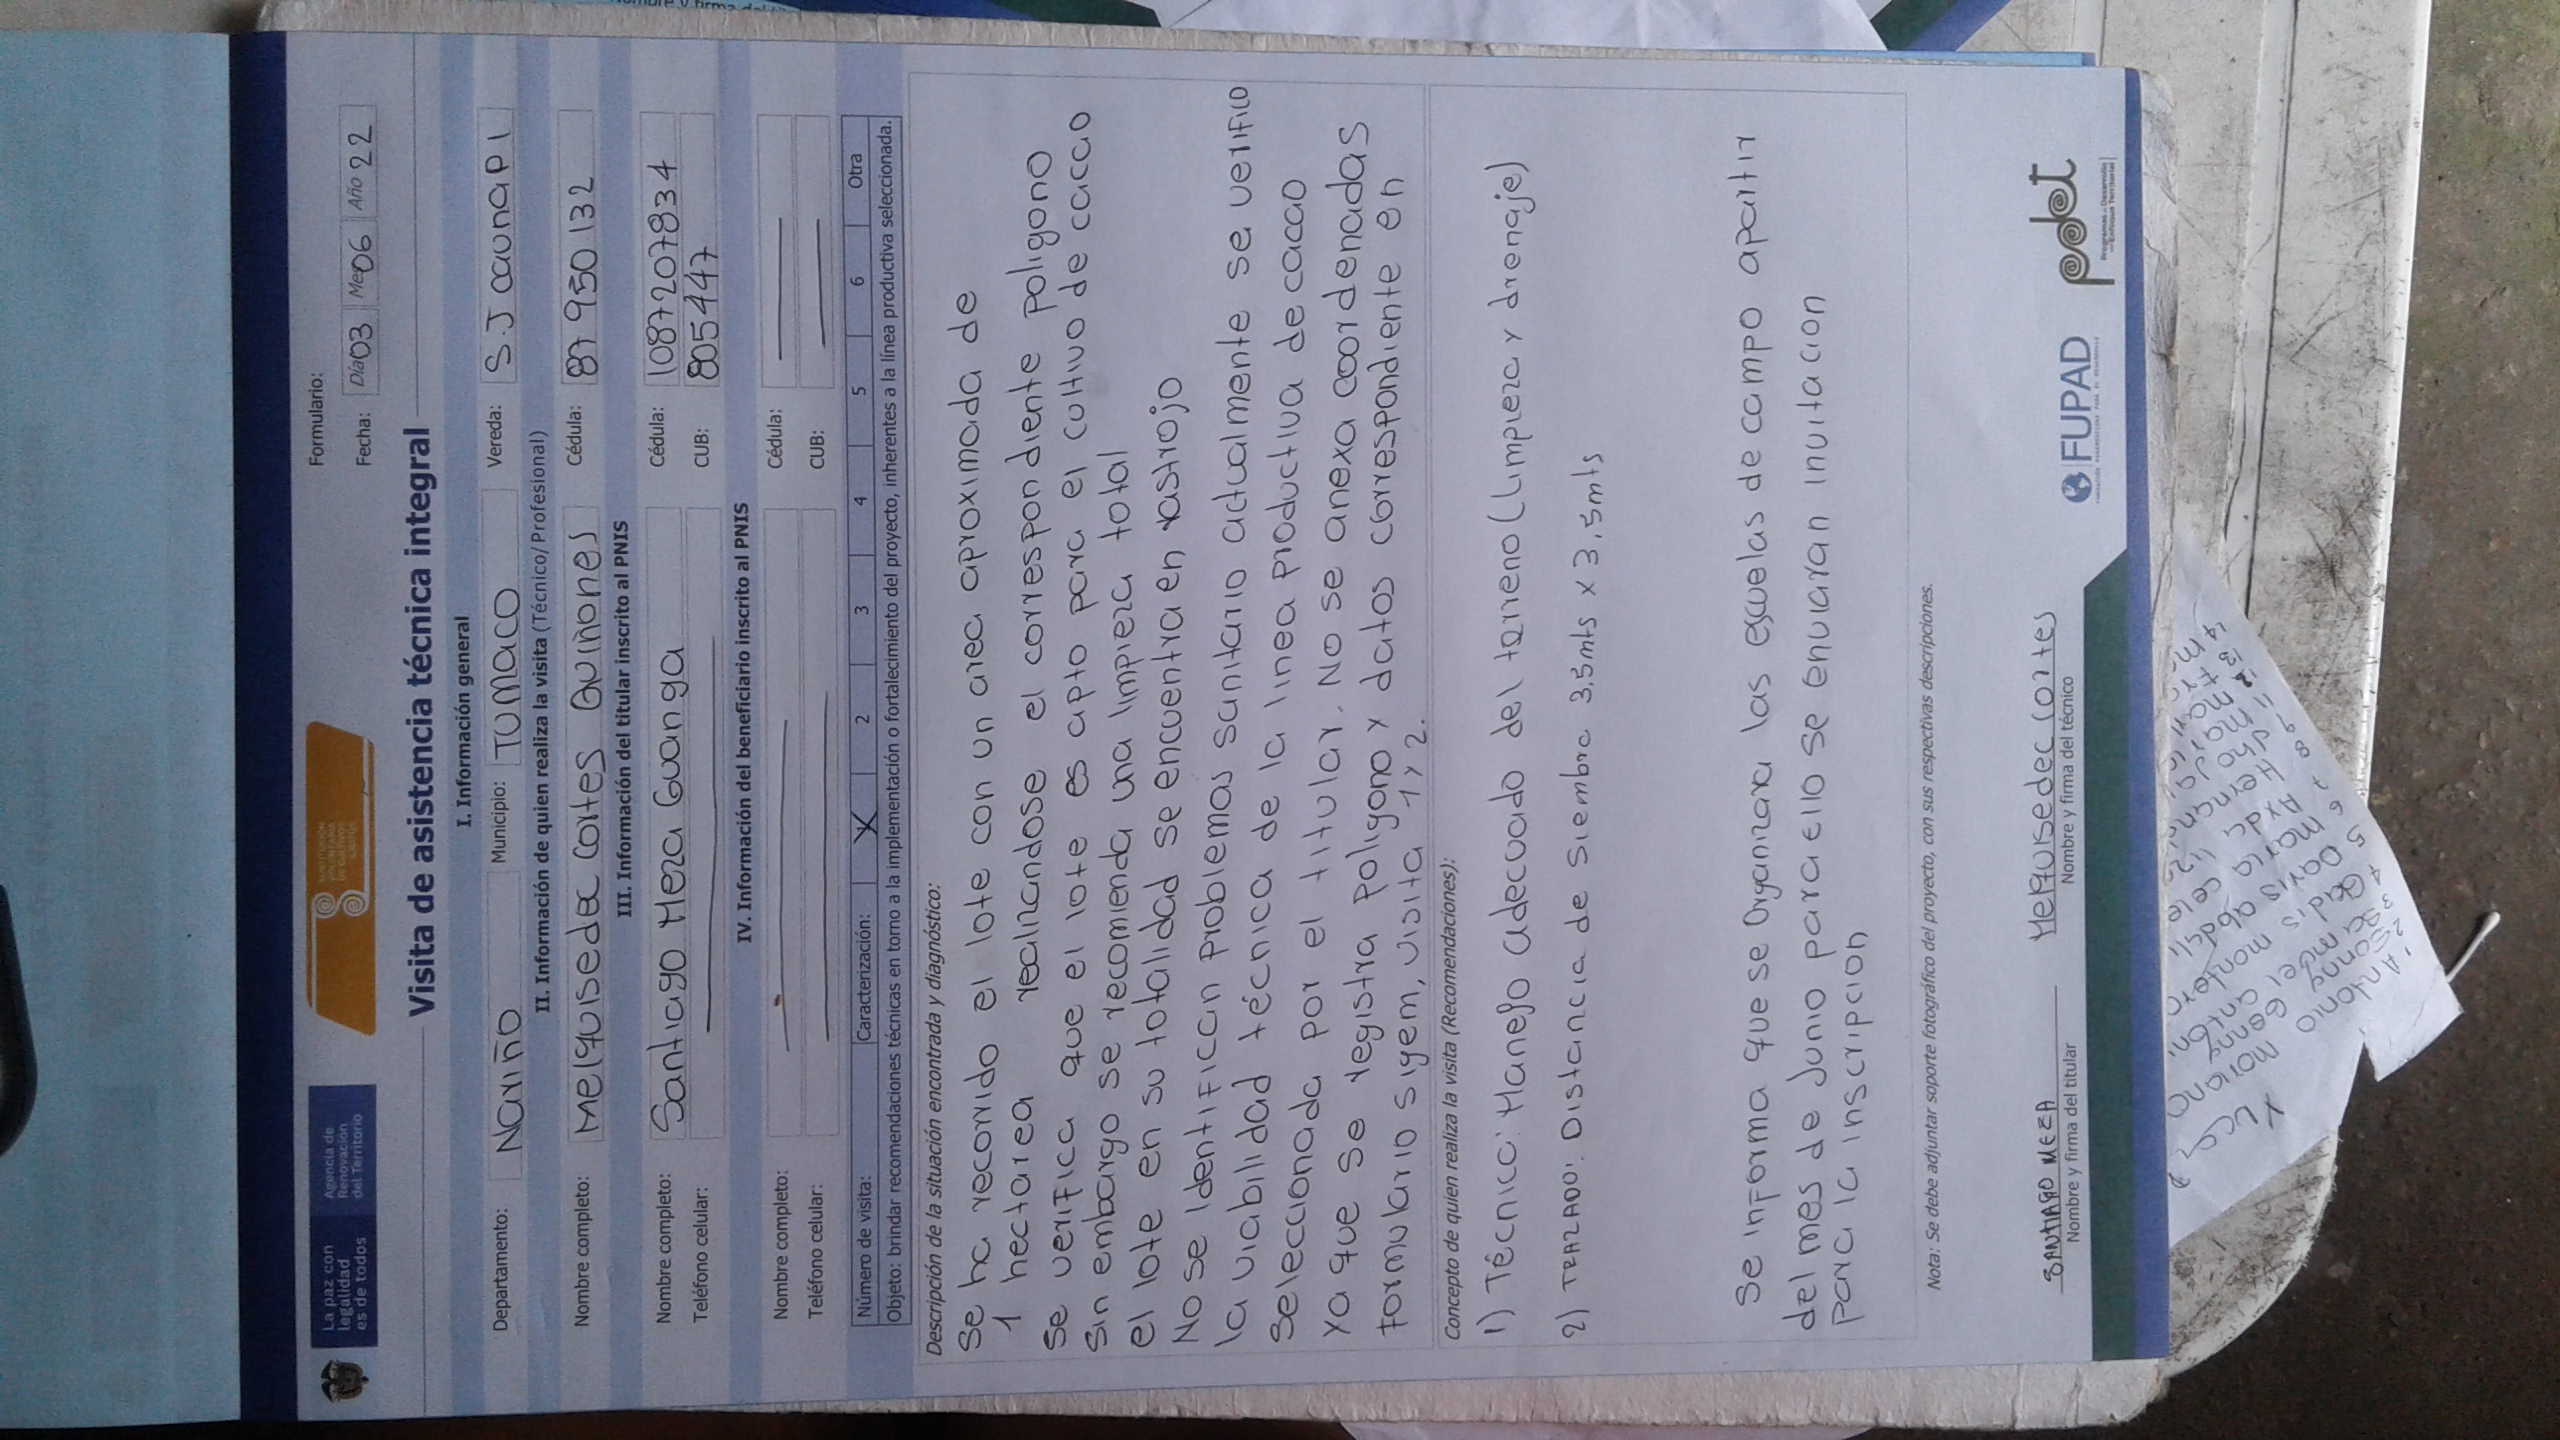 La paz con
legalidad
es de todos
Agencia de
Renovación
del Territorio
SUSTITUCIÓN
VOLUNTARIA
DE CULTIVOS
ILÍCITOS
Formulario:
Fecha: Día 03 Mes 06 Año 22
Visita de asistencia técnica integral
I. Información general
Departamento: Nariño Municipio: TUMACO Vereda: S.J caunapi
II. Información de quien realiza la visita (Técnico/Profesional)
Nombre completo: Melquisedec Cortes Quiñones Cédula: 87 950 132
III. Información del titular inscrito al PNIS
Nombre completo: Santiago Meza Guanga Cédula: 1087207834
Teléfono celular: CUB: 805447
IV. Información del beneficiario inscrito al PNIS
Nombre completo: Cédula:
Teléfono celular: CUB:
Número de visita: Caracterización: X 2 3 4 5 6 Otra
Objeto: brindar recomendaciones técnicas en torno a la implementación o fortalecimiento del proyecto, inherentes a la línea productiva seleccionada.
Descripción de la situación encontrada y diagnóstico:
Se ha recorrido el lote con un area aproximada de
1 hectarea realizandose el correspondiente poligono
Se verifica que el lote es apto para el cultivo de cacao
Sin embargo se recomienda una limpieza total
el lote en su totalidad se encuentra en rastrojo
No se identifican problemas sanitario actualmente se verifico
la viabilidad técnica de la linea productiva de cacao
Seleccionada por el titular. No se anexa coordenadas
Ya que se registra poligono y datos correspondiente en
formulario sigem, visita 1 y 2.
Concepto de quien realiza la visita (Recomendaciones):
1) Técnico: Manejo adecuado del terreno (Limpieza y drenaje)
2) TRAZADO: Distancia de siembra 3.5mts x 3,5mts
Se informa que se Organizara las escuelas de campo apartir
del mes de Junio para ello se enviaran invitacion
para la inscripcion
Nota: Se debe adjuntar soporte fotográfico del proyecto, con sus respectivas descripciones.
SANTIAGO MEZA
Nombre y firma del titular
Melquisedec Cortes
Nombre y firma del técnico
FUPAD
pdet
Programas de Desarrollo
con Enfoque Territorial
1 Antonio
2 Sonny Genny
4 Gadis montero